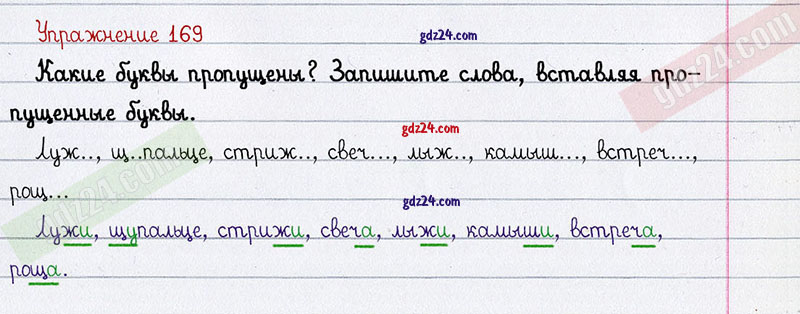 Упражнение 169
gdz24.com
Какие буквы пропущены? Запишите слова, вставляя про-
gdz24.com
пущенные буквы.
gdz24.com
Луж.., щ..пальце, стриж.., свеч..., лыж.., камыш..., встреч...,
рощ...
gdz24.com
gdz24.com
Лужи, щупальце, стрижи, свеча, лыжи, камыши, встреча,
роща.